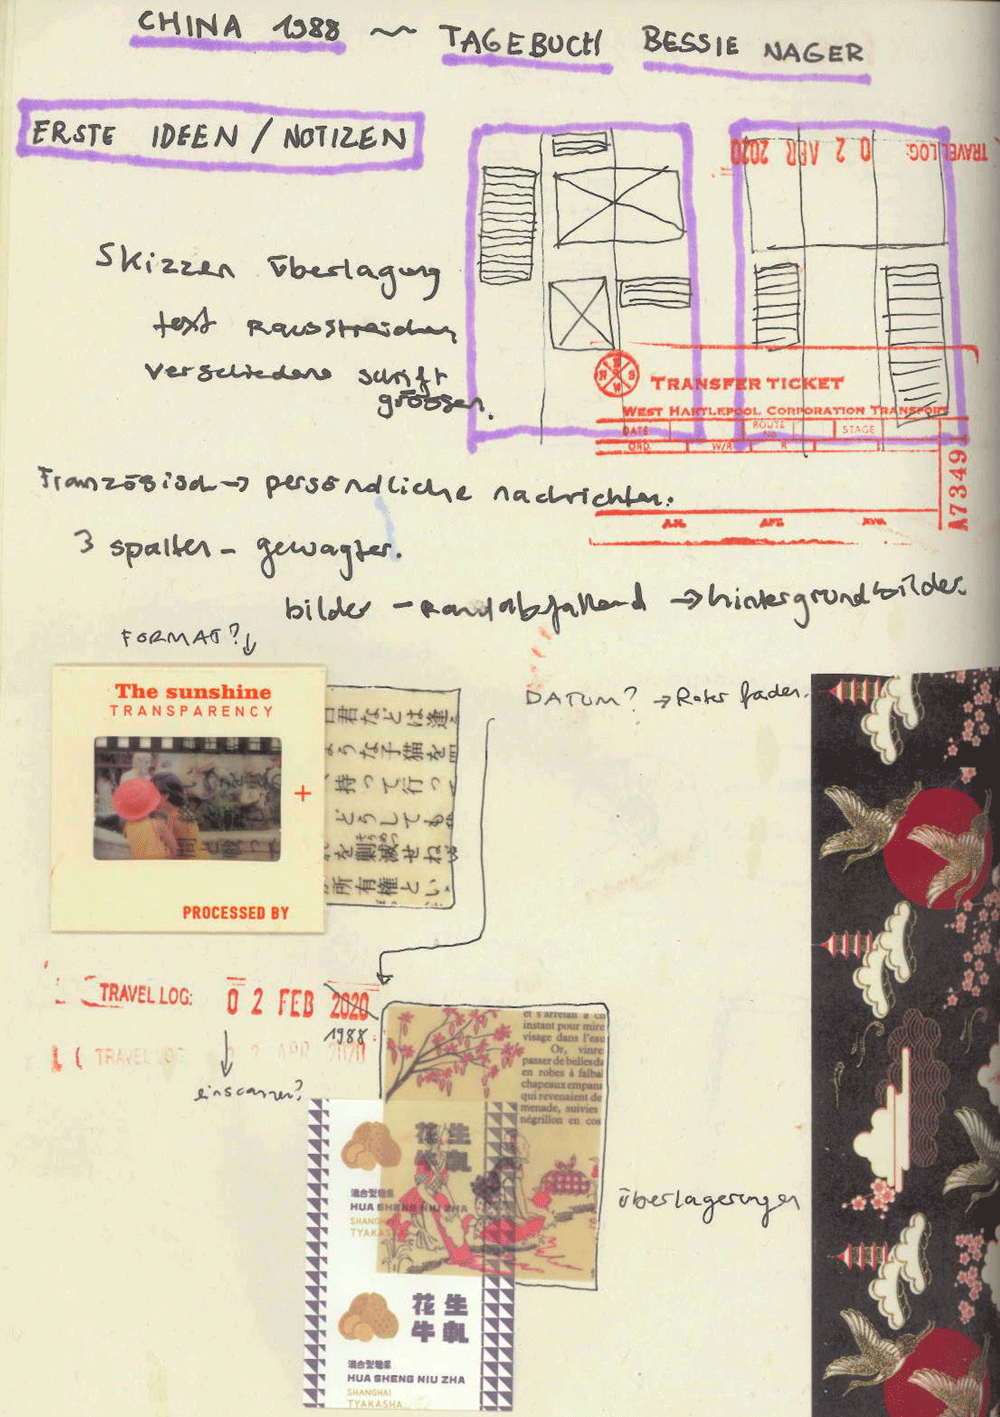 CHINA 1988 ~ TAGEBUCH BESSIE NAGER
ERSTE IDEEN / NOTIZEN
TRAVEL LOG: 0 2 APR 2020
Skizzen überlagung
text rausstreichen
verschiedene schrift
grössen.
N E S W
TRANSFER TICKET
WEST HARTLEPOOL CORPORATION TRANSPORT
DATE ROUTE NO STAGE
ORD. W/R R
A73491
Französisch → persöndliche nachrichten.
3 spalten - gewagter.
bilder - randabfallend → hintergrundbilder.
FORMAT?
The sunshine
TRANSPARENCY
+
PROCESSED BY
君などは逢
うな子猫を
持って行っ
どうしても
を削減せね
所有権とい
DATUM? → Roter faden.
TRAVEL LOG: 0 2 FEB 2020
1988
TRAVEL LOG 0 2 APR 2020
einscannen?
et s'arrêtait à
instant pour mire
visage dans l'eau
Or, vinre
passer de belles da
en robes à falba
chapeaux empana
qui revenaient de
menade, suivies
négrillon en cos
花生
牛軋
混合型糖果
HUA SHENG NIU ZHA
SHANGHAI
TYAKASHA
überlagerungen
花生
牛軋
混合型糖果
HUA SHENG NIU ZHA
SHANGHAI
TYAKASHA